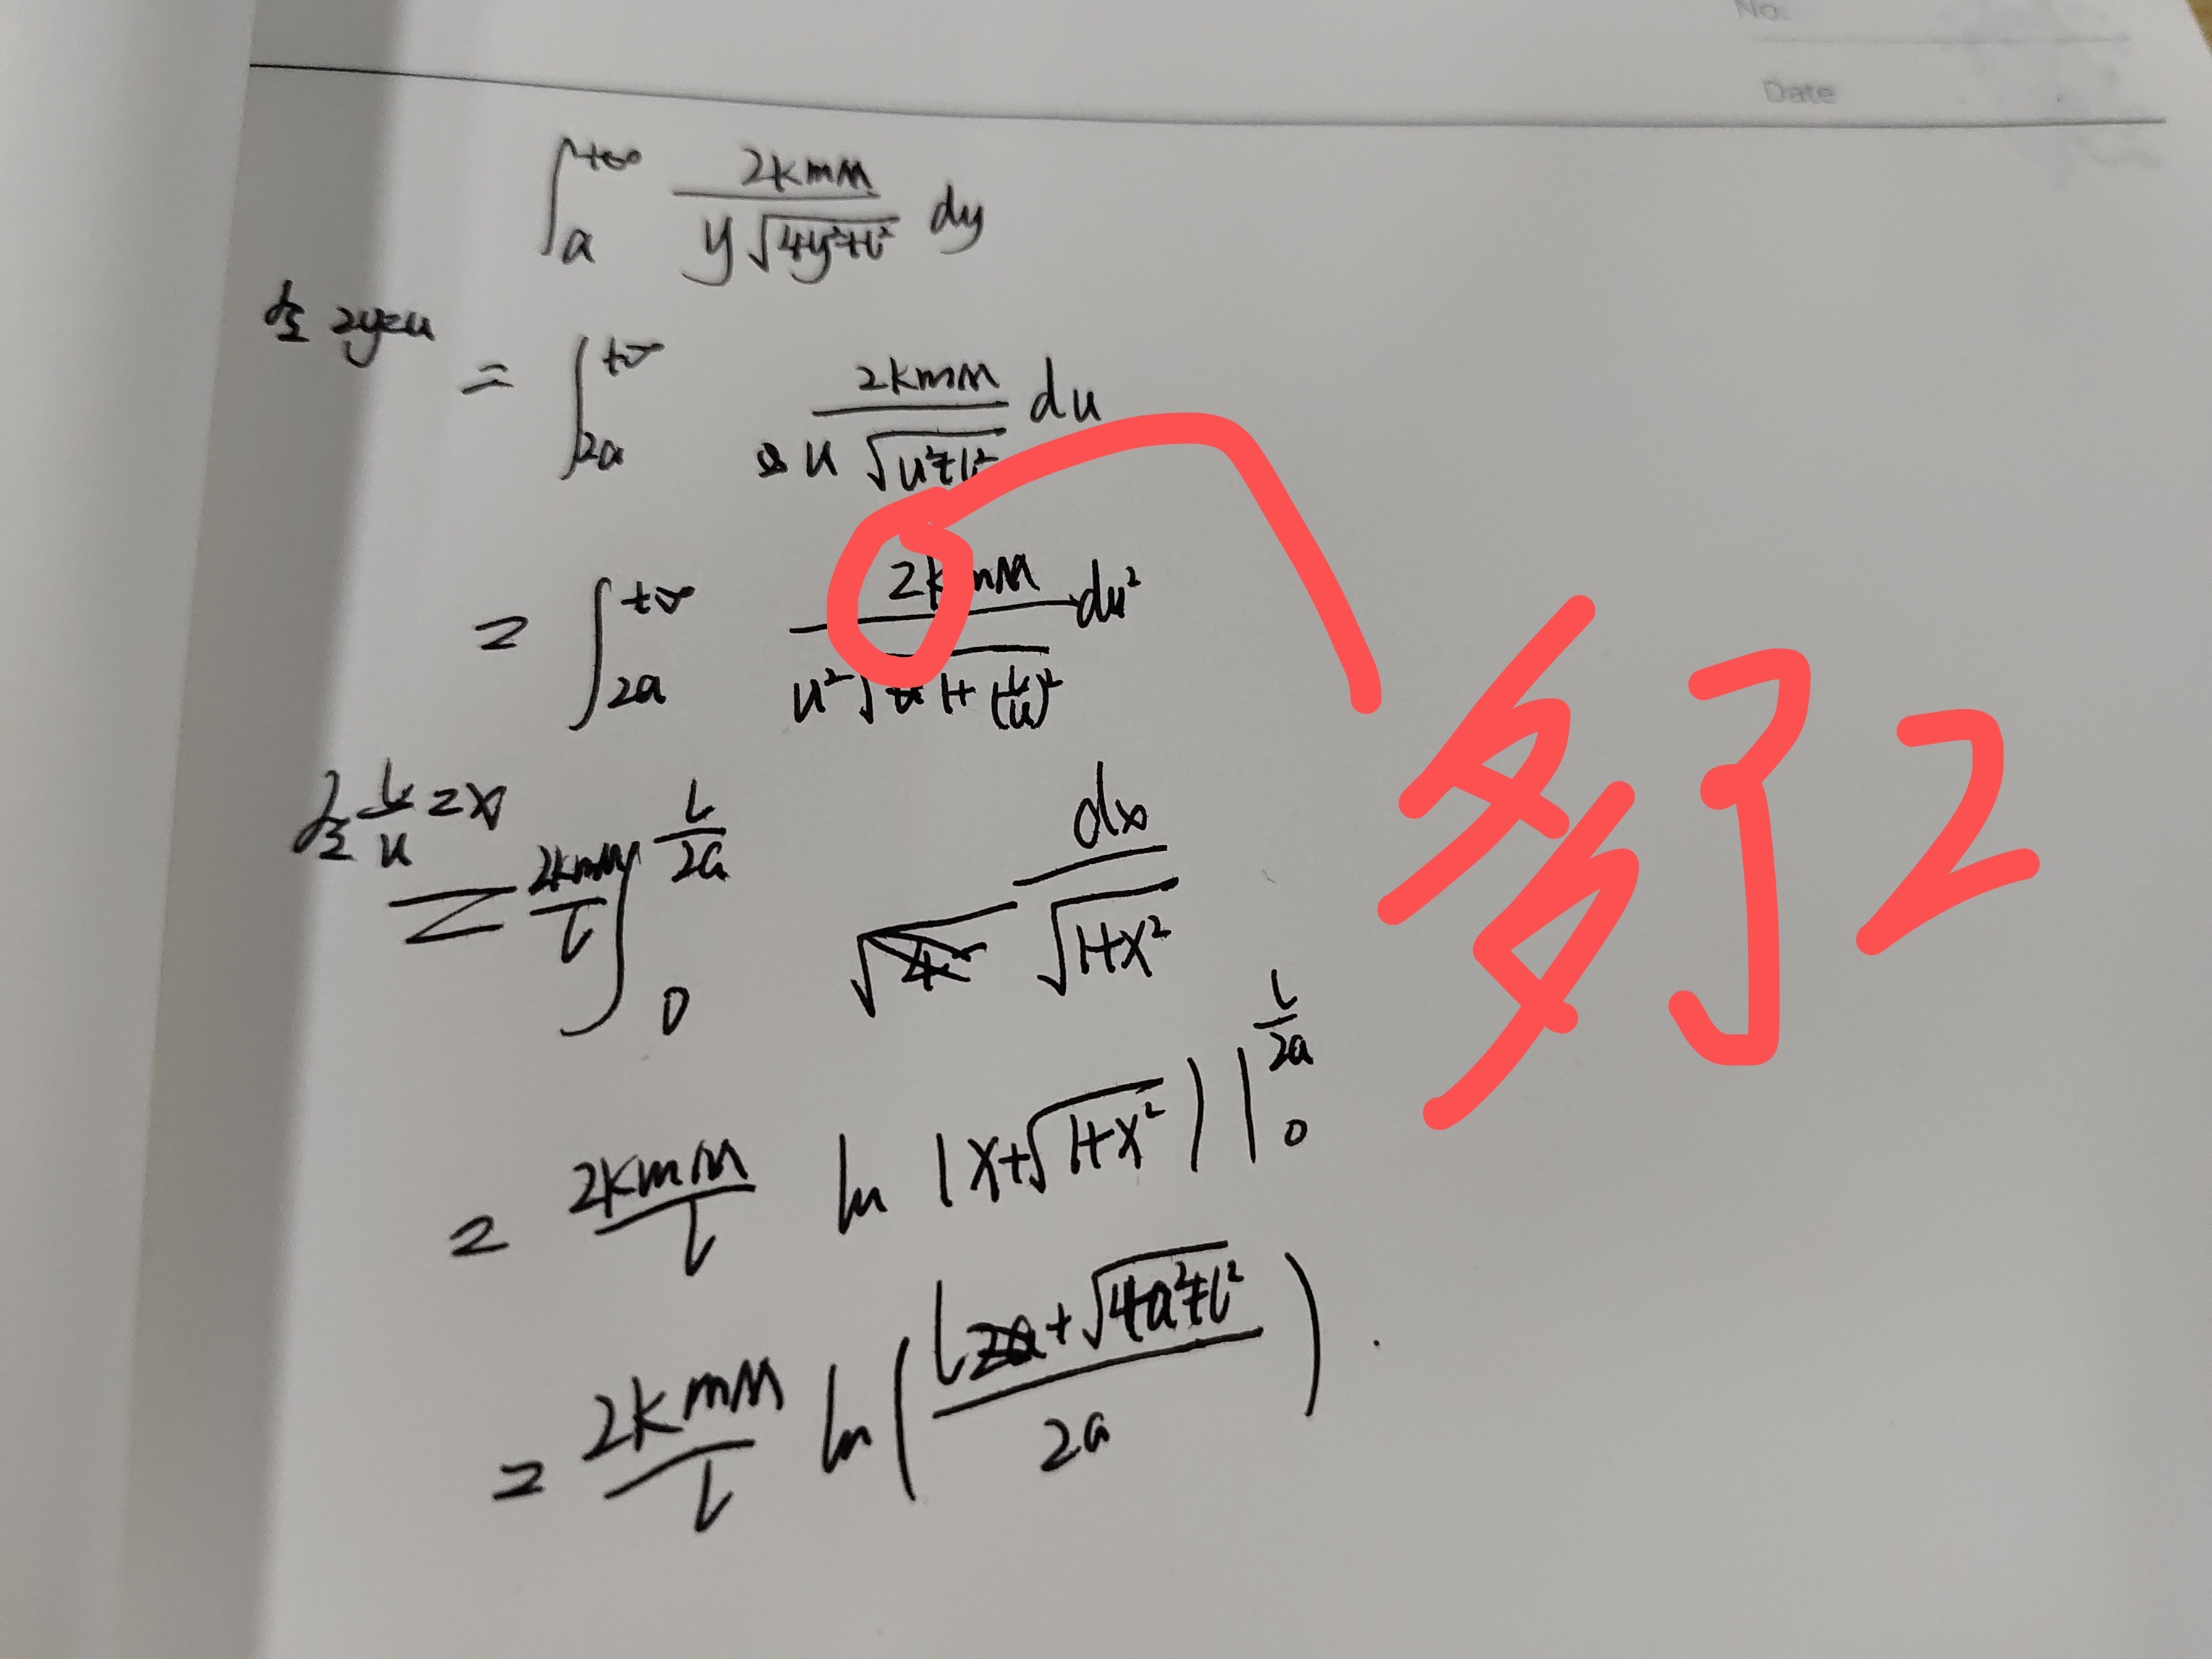 No.
Date
∫ₐ^{+∞} 2kmM / (y√(4y²+l²)) dy
令 2y=u
= ∫_{2a}^{+∞} 2kmM / (u√(u²+l²)) du
= ∫_{2a}^{+∞} 2kmM / (u²√(1+(l/u)²)) du²
多了2
令 l/u = x
= 2kmM/l ∫₀^{l/2a} dx / √(1+x²)
= 2kmM/l ln|x+√(1+x²)| |₀^{l/2a}
= 2kmM/l ln((l+√(4a²+l²)) / 2a).